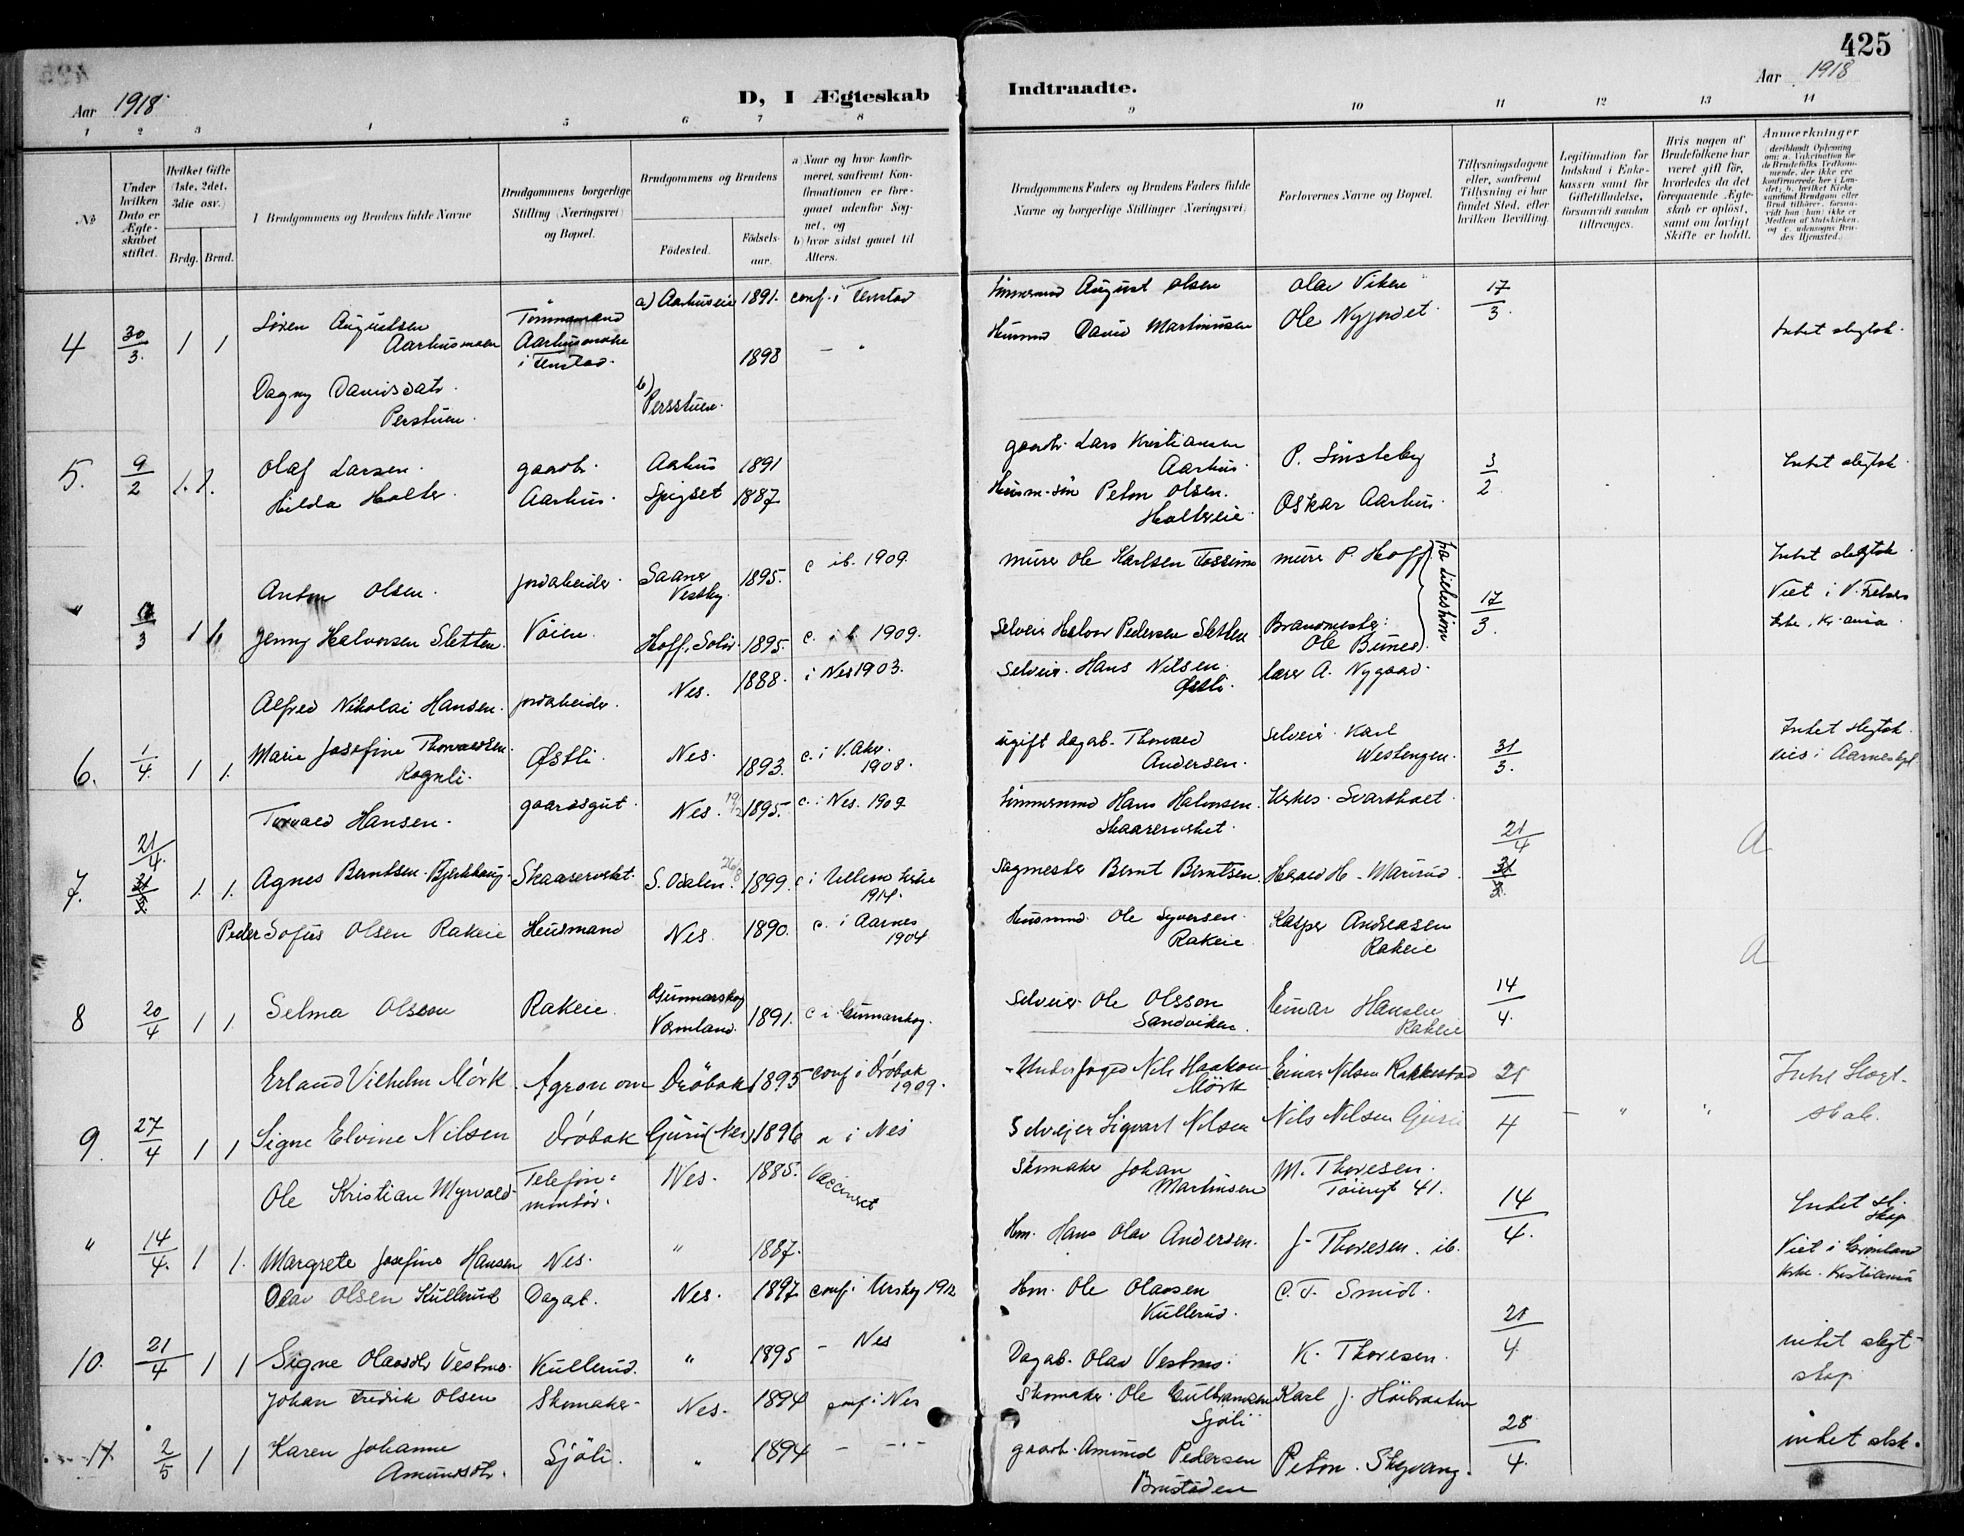 425
Aar 1918
D, I Ægteskab Indtraadte.
Aar 1918
1 2 3 4 5 6 7 8 9 10 11 12 13 14
No
Under hvilken Dato er Ægteskabet stiftet.
Hvilket Gifte (1ste, 2det, 3die osv.)
Brdg. Brud.
Brudgommens og Brudens fulde Navne
Brudgommens borgerlige Stilling (Næringsvei) og Bopæl.
Brudgommens og Brudens
Födested.
Födselsaar.
a) Naar og hvor konfirmeret, saafremt Konfirmationen er foregaaet udenfor Sognet, og
b) hvor sidst gaaet til Alters.
Brudgommens Faders og Brudens Faders fulde Navne og borgerlige Stillinger (Næringsvei)
Forlovernes Navne og Bopæl.
Tillysningsdagene eller, saafremt Tillysning ei har fundet Sted, efter hvilken Bevilling.
Legitimation for Indskud i Enkekassen samt for Giftetilladelse, forsaavidt saadan tiltrænges.
Hvis nogen af Brudefolkene har været gift för, hvorledes da det foregaaende Ægteskab er oplöst, samt om lovligt Skifte er holdt.
Anmærkninger
4 30/3 1 1
Sören Augustsen Aarhusmoen
Tömmermand Aarhusmoen i Fenstad.
a) Aarhuseie 1891. conf. i Fenstad
Tömmermd August Olsen
Olav Viken
17/3
Dagny Davidsdatr. Perstuen.
b) Persstuen. 1898 — "
Husmd David Martinusen
Ole Nygjordet.
Intet slegtsk.
5. 9/2 1. 1.
Olaf Larsen. gaardbr. Aahus 1891
gaardbr. Lars Kristiansen Aarhus.
P. Linsteby
3/2
Intet slegtsk.
Hilda Holter. Aarhus. Spigset 1887
Husm-sön Peton Olsen. Haltereie
Oskar Aarhus.
" 3 1 1.
Anton Olsen. jordarbeider. Saaner Vestby 1895. c ib. 1909.
murer Ole Karlsen Fossum
murer P. Hoff
17/3.
Intet slegtsk.
Viet i V. Frelsers kirke, Kr.ania
Jenny Halvorsen Sletten. Vöien. Hoff, Solör. 1895. c. ib 1909.
Selveier Halvor Pedersen Sletten
Brandmester: Ole Bunes.
6. 1/4 1 1.
Alfred Nikolai Hansen. jordarbeider. Nes. 1888. i Nes 1903.
Selveier. Hans Nilsen. Østli.
lærer A. Nygaard.
31/3.
Marie Josefine Thorvaldsen. Rognli. Østli. Nes. 1893. c. i V. Aker. 1908.
ugift dagarb. Thorvald Andersen.
Selveier Karl Westengen.
Intet slegtsk.
vies i Aarnes kpl.
7. 21/4. 31/3 1. 1.
Torvald Hansen. gaardsgut. Nes. 19/12 1895. c. i Nes. 1909
Tömmermd Hans Halvorsen. Skaarervsket.
Kirkes. Svartholt.
21/4 31/3
A
Agnes Berntsen. Bjerkhaug. S. Odalen. 26/8 1899. c i Ullern kirke 1914.
Sagmester Bernt Berntsen.
Harald H. Marirud.
8 20/4 1 1
Peder Sofus Olsen Rakeie Husmand Nes. 1890. c. i Aarnes 1904
Husmnd. Ole Syversen. Rakeie
Kasper Andreasen Rakeie
A
Selma Olsson Rakeie. Gunnarskog Vermland 1891. c i Gunnarskog.
Selveier Ole Olsson Sandviken.
Einar Hansen Rakeie
14/4.
9. 27/4 1 1
Erland Vilhelm Mörk. Agronom Dröbak 1895 conf i Dröbak 1909.
Underfoged Nils Haakon Mörk
Einar Nilsen Rakkestad
21/4
Intet slegtskab.
Signe Elvine Nilsen Dröbak Guri (Nes) 1896 " i Nes
Selvejer Sigvart Nilsen
Nils Nilsen Guri
" 14/4. 1 1.
Ole Kristian Myrvold Telefonmontör. Nes. 1885. Vaccineret
Skomaker Johan Martinsen
M. Thoresen. Töiengt 41.
14/4.
Intet sl.skap
Viet i Grönland kirke. Kristiania
Margrete Josefine Hansen Nes. " 1887.
Hm. Hans Olav Andersen.
J. Thoresen. ib.
10. 21/4 1 1
Olav Olsen Kullerud Dagarb. Nes. 1897 conf. i Urskog 1912
Hm. Ole Olavsen Kullerud.
C. T. Smidt.
21/4
intet slegtskap
Signe Olavsdtr Vestmo. Kullerud. " 1895 — Nes
Dagarb. Olav Vestmo.
K. Thoresen.
11 2/5 1 1
Johan Fredrik Olsen Skomaker. Nes. 1894 conf. i Nes
Skomaker. Ole Gulbrandsen Sjöli
Karl J. Höibraaten
28/4.
intet slsk.
Karen Johanne Amundsdtr. Sjöli. " 1894 — " —
gaarb. Amund Pedersen Brustaden
Peton. Skyvang.